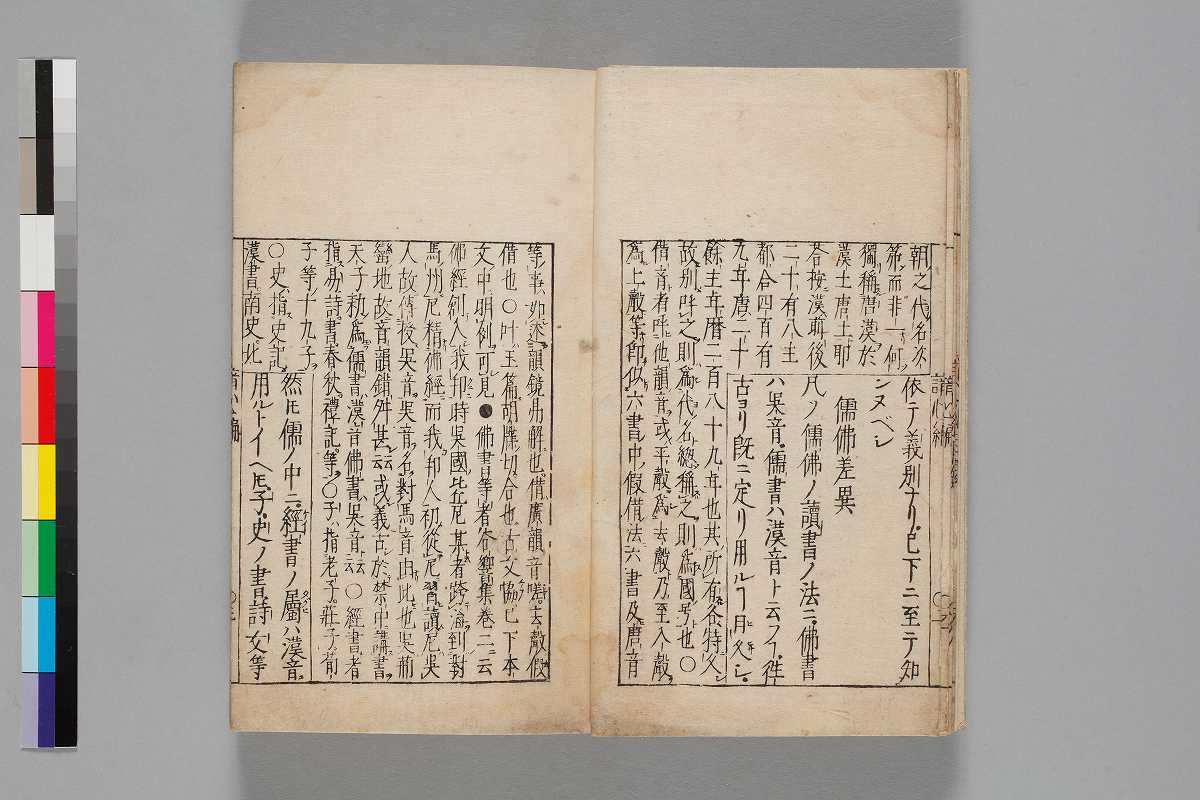 朝之代名次
第而非一何
獨稱唐漢於
漢土唐土耶
荅按漢耶後
二十有八主
都合四百有
九年唐二十
依テ義別ナリ已下ニ至テ知
ンヌベシ
儒佛差異
凡ソ儒佛ノ讀書ノ法ニ佛書
ハ呉音儒書ハ漢音ト云フヿ往
古ヨリ既ニ定リ用ルヿ月久シ
餘主年暦二百八十九年也其所有各特久
故別呼之則為代名総稱之則為國号也〇
借音者呼他韻音或平聲為去聲乃至入聲
為上聲等卽似六書中假借法六書及唐音
等事如韻鏡易解也借廣韻音嗟去聲假
借也〇叶玉篇胡牒切合也古文恊已下本
文中明例可見●佛書等者谷響集卷二云
佛經創入我邦時呉國比丘尼某者跨海到對
馬州尼精佛經而我邦人初從尼習讀尼呉
人故傳授呉音呉音名對馬音由此也呉萠
蠻地故音韻錯舛甚云或義古於禁中講書
天子勅為儒書漢音佛書呉音云〇經書者
指易詩書春秋禮記等〇子指老子莊子荀
子等十九子
〇史指史記
漢書南史北
然ㇳモ儒ノ中ニ經書ノ屬ハ漢音
用ルトイヘㇳモ子史ノ書詩文等